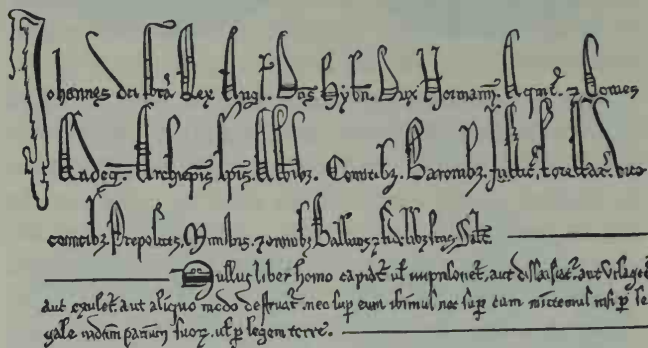 Johannes dei Gra Rex Angl. Dns Hybn. Dux Normann. Aquit. ⁊ Comes
Andeg. Archiepis. Epis. Abbibz. Comitibz. Baronibz. Justic. Forestar. vice
comitibz. Prepositis. Ministris. ⁊ omnibz Ballivis ⁊ fidelibz suis. Saltm
Nullus liber homo capiat. ul imprisonet. aut dissaisiat. aut utlaget
aut exulet. aut aliquo modo destruat. nec sup eum ibimus nec sup eum mittemus nisi p le
gale judicium parium suorz. ul p legem terre.